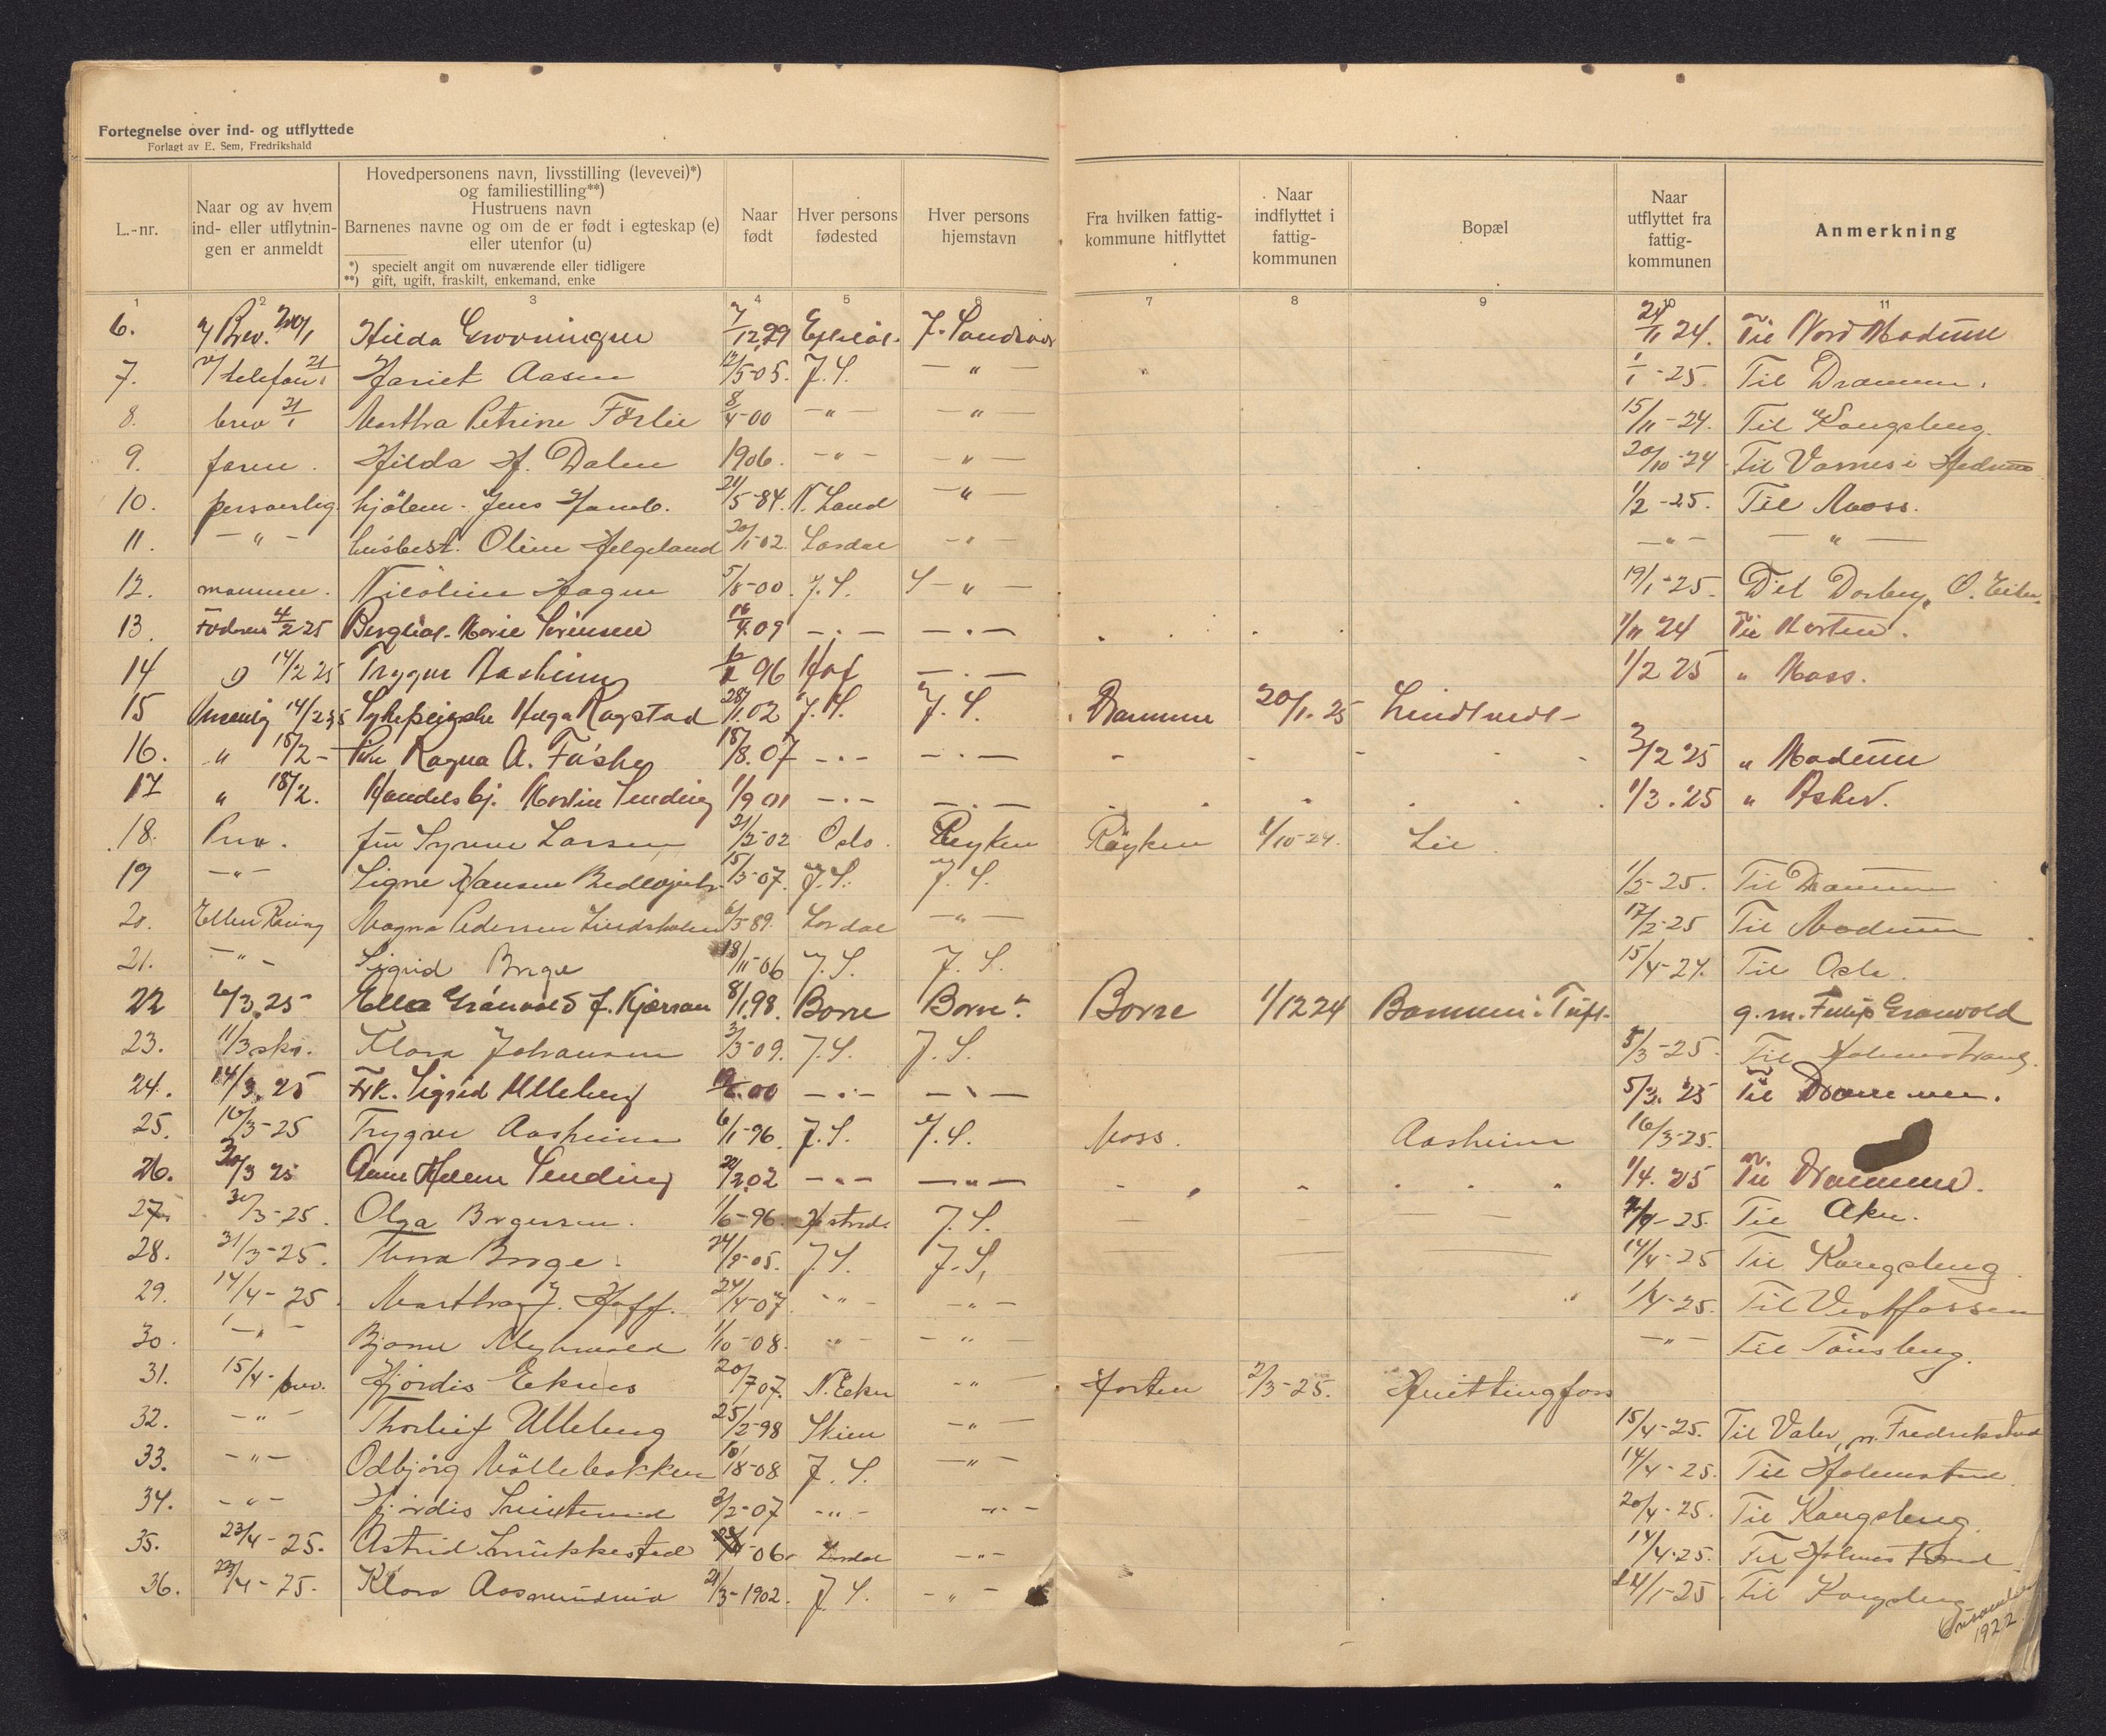 Fortegnelse over ind- og utflyttede
Forlagt av E. Sem, Fredrikshald
L.-nr.
Naar og av hvem ind- eller utflytnin- gen er anmeldt
Hovedpersonens navn, livsstilling (levevei)*)
og familiestilling**)
Hustruens navn
Barnenes navne og om de er født i egteskap (e)
eller utenfor (u)
*) specielt angit om nuværende eller tidligere
**) gift, ugift, fraskilt, enkemand, enke
Naar født
Hver persons fødested
Hver persons hjemstavn
Fra hvilken fattig- kommune hitflyttet
Naar indflyttet i fattig- kommunen
Bopæl
Naar utflyttet fra fattig- kommunen
Anmerkning
1 2 3 4 5 6 7 8 9 10 11
6. Brev. 20/1 Hilda Grovningen J. Sandsvær 24. Til Nord Modum
7. telefon 21/1 Hariet Aasen 12/5-05. J. S. — " — 1/1-25. Til Drammen.
8. brev 21/1 Martha Petrine Förlie 8/4-00 — " — — " — 15/11-24. Til Kongsberg.
9. faren. Hilda H. Dalen 1906. — " — — " — 20/10-24 Til Varnes i Hedrum
10. personlig Jens Hamb. 21/5-84. N. Land — " — 1/2-25. Til Moss.
11. — " — husbest. Oline Helgeland 20/1-02. Lardal — " — — " — — " —
12. mannen. Nicoline Hagen 5/8-00. J. S. — " — 19/1-25. Til Ö. Eiker
13. 4/2 25 Marie Sørensen 4.09 — " — — " — 1/11 24 Til Horten.
14 14/2 25 Trygve Aasheim 96 Hof — " — 1/2 25 " Moss.
15 14/2 25 Sykepleierske Helga Rogstad 28/1.02 J. S. J. S. Drammen 20/1-25
16. " 18/2 - Ragna A. 18/8.07 — " — — " — 3/2 25 " Modum
17 " 18/2. Handelsbj. Martin Sending 1/9 01 — " — — " — 1/3.25 " Asker.
18. Larsen 21/2-02 Oslo. Røyken Röyken 1/10-24. Lie
19 — " — Signe Hansen 15/3-07. J. S. J. S. 1/2-25. Til Drammen
20. Magna Pedersen Lindsholm 6/3-89. Lardal — " — 17/2-25 Til Modum
21. — " — Sigrid Borge 18/11-06 J. S. J. S. 15/4-24. Til Oslo.
22 6/3.25 Ella Grönvold f. Kjærran 8/1.98. Borre Borre. Borre 1/12 24 g. m. Grønvold
23. 11/3 skr. Klara Johansen 3/3-09. J. S. J. S. 5/3-25. Til Holmestrand.
24. 14/3.25 Frk. Sigrid Ulleberg 00 — " — — " — 5/3.25 Til Drammen.
25. 16/3-25 Trygve Aasheim 6/1-96. J. S. J. S. Moss. Aasheim 16/3-25.
26. 20/3 25 Anne Helene Sending 02 — " — — " — 1/4.25 Til Drammen.
27. 30/3-25. Olga Borgersen. 1/6-96. J. S. 25. Til Aker.
28. 31/3-25. Thora Borge. 24/8-05. J. S. J. S. 14/4-25 Til Kongsberg
29. 14/4-25. Martha J. Hoff. 24/4-07. — " — — " — 1/4-25. Til Vestfossen
30. — " — Bjarne Myhrvold 1/10-08. — " — — " — — " — Til Tönsberg.
31. 15/4- brev. Hjördis Eknes 20/7 07. N. Eker — " — Horten 2/3-25. Hvittingfoss
32. — " — Thorleif Ulleberg 25/2-98 Skien — " — 15/4-25. Til Valer, pr. Fredrikstad
33. — " — Odbjörg Möllebakken 18-08 J. S. — " — 14/4-25. Til Holmestrand
34. — " — Hjördis 3/2-07 — " — — " — 20/4-25. Til Kongsberg
35. 23/4-25. Astrid Snukkestad 06. Lardal — " — 14/4-25. Til Holmestrand
36. 23/4-25. Klara Aasmundrud 21/3-1902. J. S. — " — 24/1-25 Til Kongsberg
1922